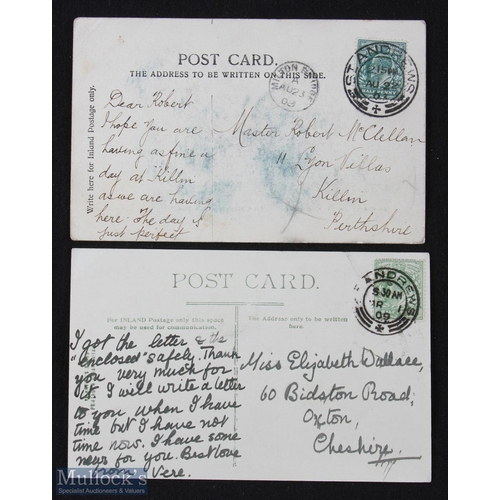 POST CARD.
THE ADDRESS TO BE WRITTEN ON THIS SIDE.
Write here for Inland Postage only.
Dear Robert
I hope you are
having as fine a
day at Killin
as we are having
here. The day is
just perfect
Master Robert McClellan
11 Lyon Villas
Killin
Perthshire
A
AU 23
03
ST. ANDREWS
AU 23
03
POST CARD.
For INLAND Postage only this space
may be used for communication.
The Address only to be
written here.
I got the letter & the
"enclosed" safely. Thank
you very much for
it. I will write a letter
to you when I have
time but I have not
time now. I have some
news for you. Best love
from Vere.
Miss Elizabeth Wallace,
60 Bidston Road,
Oxton,
Cheshire.
ANDREWS
8 30 AM
09
Mullock's
Specialist Auctioneers & Valuers